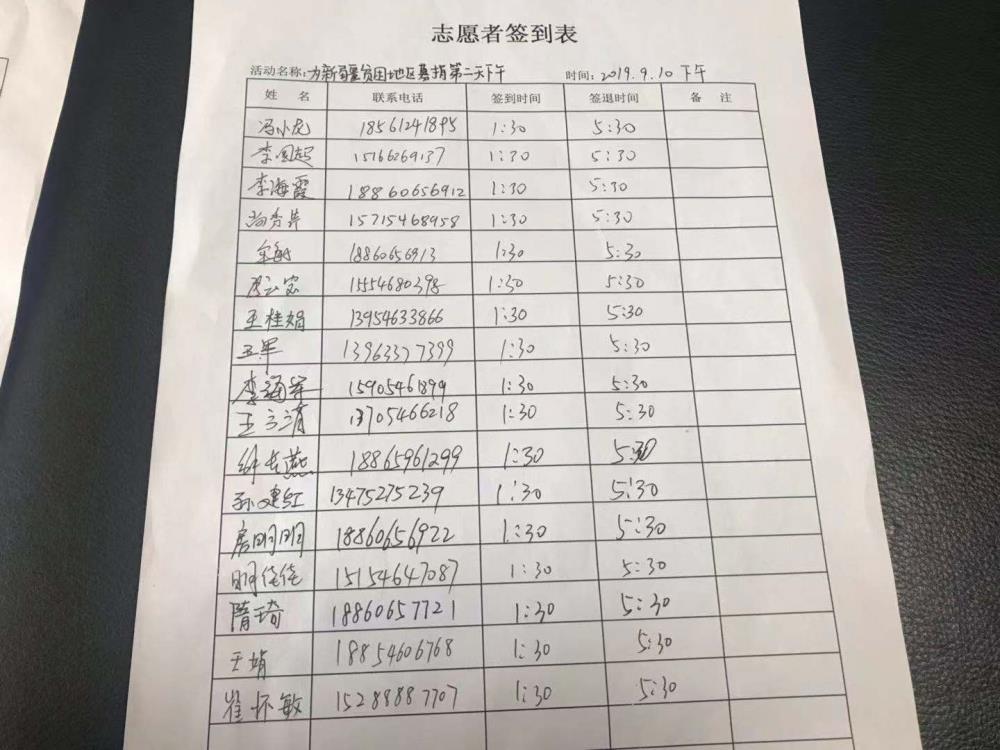 志愿者签到表
活动名称：为新疆贫困地区募捐第二天下午 时间：2019.9.10下午
姓 名 联系电话 签到时间 签退时间 备 注
冯小龙 18561241895 1:30 5:30
李国超 15166269137 1:30 5:30
李海霞 18860656912 1:30 5:30
15715468958 1:30 5:30
18860656913 1:30 5:30
15554680398 1:30 5:30
王桂娟 13954633866 1:30 5:30
王军 13963377399 1:30 5:30
李海军 15905461899 1:30 5:30
王立清 13705466218 1:30 5:30
18865961299 1:30 5:30
孙建红 13475275239 1:30 5:30
房明明 18860656922 1:30 5:30
明佳佳 15154647087 1:30 5:30
隋琦 18860657721 1:30 5:30
王娟 18854606768 1:30 5:30
崔怀敏 15288887707 1:30 5:30